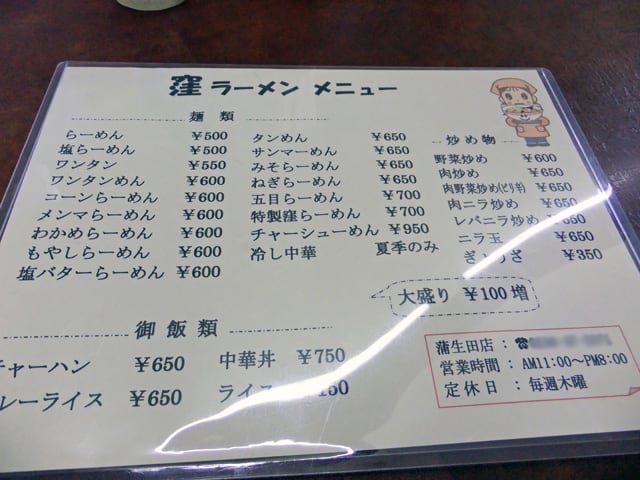 窪 ラーメン メニュー
麺 類
らーめん ¥500
塩らーめん ¥500
ワンタン ¥550
ワンタンめん ¥600
コーンらーめん ¥600
メンマらーめん ¥600
わかめらーめん ¥600
もやしらーめん ¥600
塩バターらーめん ¥600
タンめん ¥650
サンマーめん ¥650
みそらーめん ¥650
ねぎらーめん ¥650
五目らーめん ¥700
特製窪らーめん ¥700
チャーシューめん ¥950
冷し中華 夏季のみ
炒め物
野菜炒め ¥600
肉炒め ¥650
肉野菜炒め(ピリ辛) ¥650
肉ニラ炒め ¥650
レバニラ炒め ¥650
ニラ玉 ¥650
ぎょうざ ¥350
大盛り ¥100増
御 飯 類
チャーハン ¥650
レーライス ¥650
中華丼 ¥750
ライス 150
蒲生田店 : ☎
営業時間 : AM11:00~PM8:00
定休日 : 毎週木曜